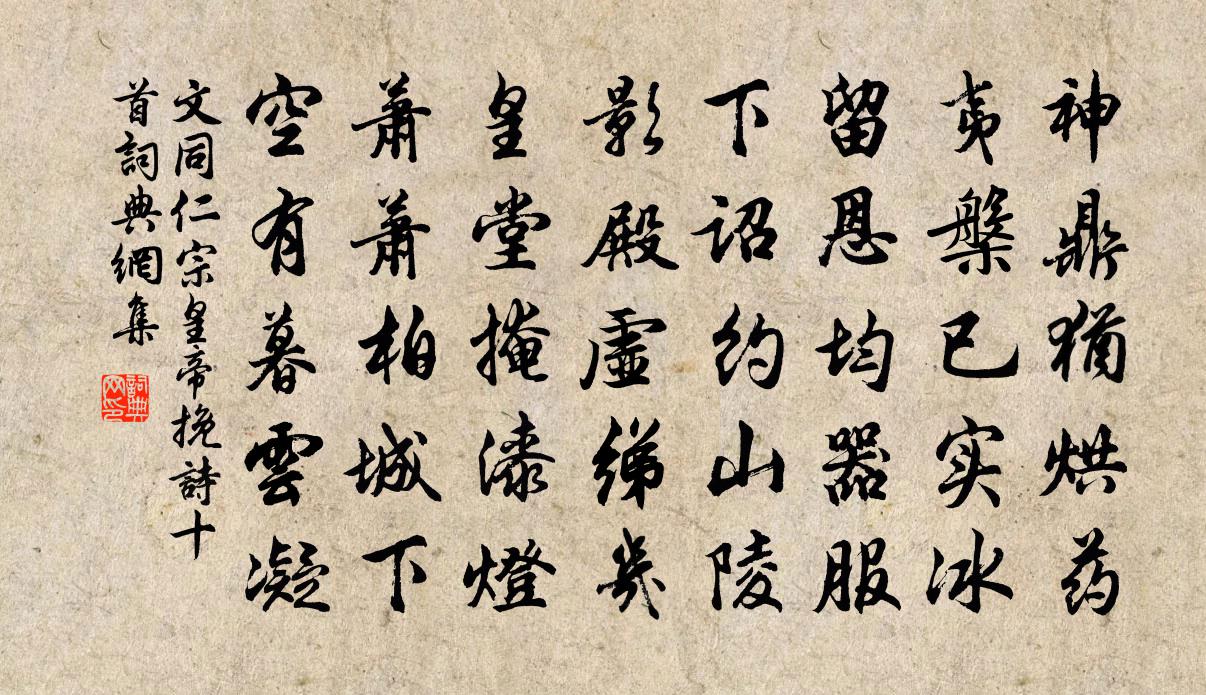 神鼎犹烘药
夷槃已实冰
留恩均器服
下诏约山陵
影殿虚绨几
皇堂掩漆燈
萧萧柏城下
空有暮雲凝
文同仁宗皇帝挽詩十
首詞典網集
詞典
网印